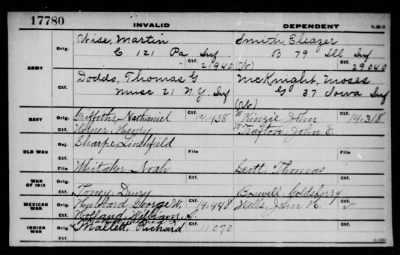 17780
INVALID
DEPENDENT
ARMY
Orig.
Wise, Martin
C 121 Pa Inf
Ctf. 21940
Smith, Eleazer
B 79 Ill Inf
(W)
Ctf. 29040
Ctf.
Dodds, Thomas G
musc 21 N.Y. Inf
McKnight, Moses
G 37 Iowa Inf
NAVY
Orig.
Griffiths, Nathaniel
Ctf. 14438
Kinzie John
Ctf. 14318
Ctf.
Henry
John E.
OLD WAR
Rej.
Sharpe,
File
File
Whitaker Noah
Scott, Thomas
WAR OF 1812
Orig.
Ctf.
Toney, Drury
Goldsberry
MEXICAN WAR
Orig.
Hubbard, George W.
Ctf. 19448
Wells, John H.
Ctf.
Ctf.
Holland, William
INDIAN WAR
Orig.
Mallett, Richard
11070
Ctf.